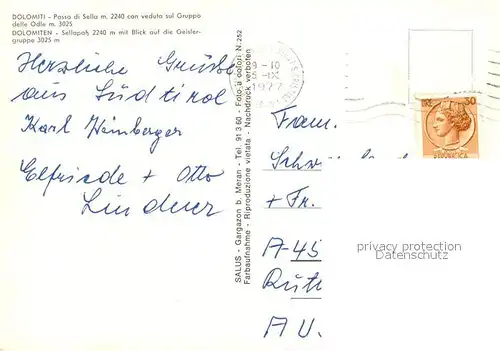 DOLOMITI - Passo di Sella m. 2240 con veduta sul Gruppo
delle Odle m. 3025
DOLOMITEN - Sellapaß 2240 m mit Blick auf die Geisler-
gruppe 3025 m
Herzliche Grüße
aus Südtirol
Karl Heimberger
Elfriede + Otto
Linderer
SALUS - Gargazon b. Meran - Tel. 91 3 60 - Foto a colori N. 252
Farbaufnahme - Riproduzione vietata - Nachdruck verboten
9-10
1977
LIRE 30
Fam.
+ Fr.
A-45
A U.
privacy protection
Datenschutz